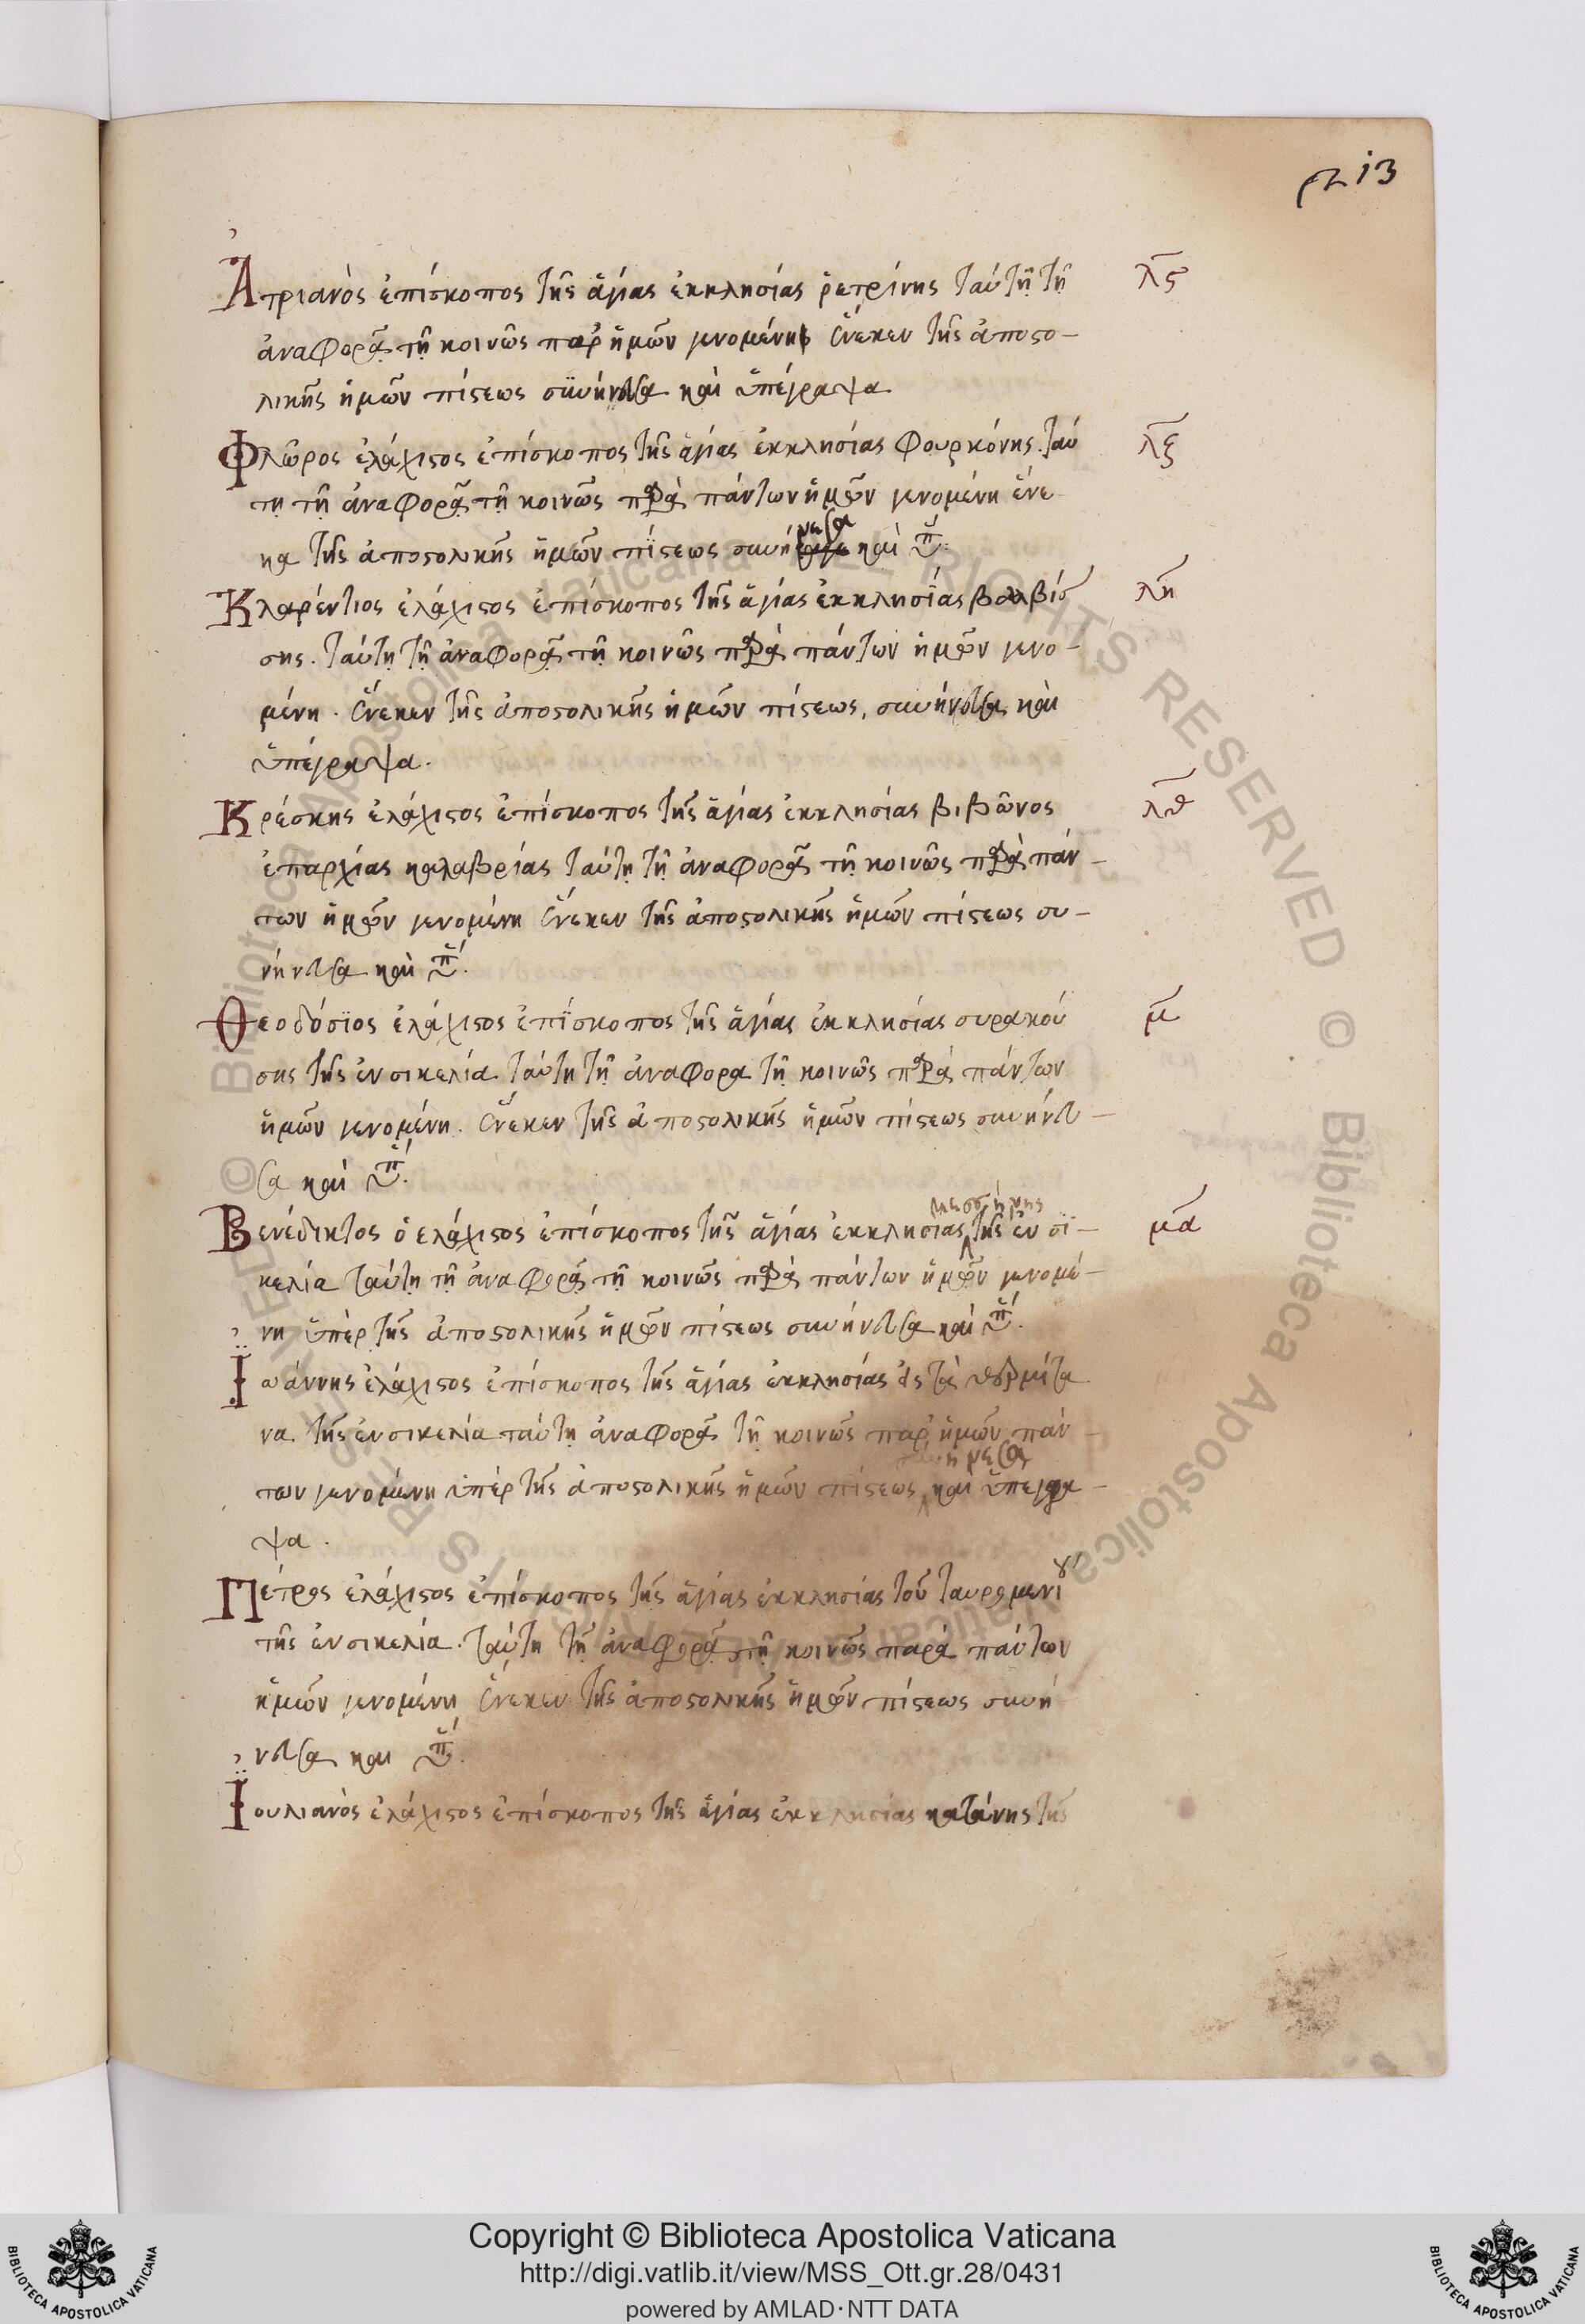 213
Ἀτριανὸς ἐπίσκοπος τῆς ἁγίας ἐκκλησίας ῥετρίνης ταύτῃ τῇ
λς
ἀναφορᾷ τῇ κοινῶς παρ ἡμῶν γενομένη ἕνεκεν τῆς ἀποστο-
λικῆς ἡμῶν πίστεως συνήνεσα καὶ ὑπέγραψα
Φλῶρος ἐλάχιστος ἐπίσκοπος τῆς ἁγίας ἐκκλησίας φουρκόνης. ταύ
λξ
τῃ τῇ ἀναφορᾷ τῇ κοινῶς παρὰ πάντων ἡμῶν γενομένη ἕνε
κα τῆς ἀποστολικῆς ἡμῶν πίστεως συνήνεσα καὶ ὑπ.
Κλαρέντιος ἐλάχιστος ἐπίσκοπος τῆς ἁγίας ἐκκλησίας βαλβίσ
λη
σης. ταύτῃ τῇ ἀναφορᾷ τῇ κοινῶς παρὰ πάντων ἡμῶν γενο-
μένη. ἕνεκεν τῆς ἀποστολικῆς ἡμῶν πίστεως, συνήνεσα καὶ
ὑπέγραψα.
Κρέσκης ἐλάχιστος ἐπίσκοπος τῆς ἁγίας ἐκκλησίας βιβῶνος
λθ
ἐπαρχίας καλαβρίας ταύτῃ τῇ ἀναφορᾷ τῇ κοινῶς παρὰ πάν-
των ἡμῶν γενομένη ἕνεκεν τῆς ἀποστολικῆς ἡμῶν πίστεως συ-
νήνεσα καὶ ὑπ.
Θεοδόσϊος ἐλάχιστος ἐπίσκοπος τῆς ἁγίας ἐκκλησίας συρακού
μ
σης τῆς ἐν σικελία. ταύτη τῇ ἀναφορα τῇ κοινῶς παρὰ πάντων
ἡμῶν γενομένη. ἕνεκεν τῆς ἀποστολικῆς ἡμῶν πίστεως συνήνε-
σα καὶ ὑπ.
μεσσήνης
Βενέδικτος ὁ ἐλάχιστος ἐπίσκοπος τῆς ἁγίας ἐκκλησιας τῆς ἐν σϊ-
μα
κελία ταύτῃ τῇ ἀναφορᾷ τῇ κοινῶς παρὰ πάντων ἡμῶν γενομέ-
νη ὑπὲρ τῆς ἀποστολικῆς ἡμῶν πίστεως συνήνεσα καὶ ὑπ.
Ἰωάννης ἐλάχιστος ἐπίσκοπος τῆς ἁγίας ἐκκλησίας εἰς τὰ θερμίτα
να. τῆς ἐν σικελία ταύτῃ ἀναφορᾷ τῇ κοινῶς παρ ἡμῶν πάν-
συνήνεσα
των γενομένη ὑπὲρ τῆς ἀποστολικῆς ἡμῶν πίστεως καὶ ὑπεγρα-
ψα.
Πέτρος ἐλάχιστος ἐπίσκοπος τῆς ἁγίας ἐκκλησίας τοῦ ταυρομενίου
τῆς ἐν σικελία. ταύτη τῇ ἀναφορᾷ τῇ κοινῶς παρὰ πάντων
ἡμῶν γενομένη ἕνεκεν τῆς ἀποστολικῆς ἡμῶν πίστεως συνή
νεσα και ὑπ.
Ἰουλιανὸς ἐλάχιστος ἐπίσκοπος τῆς ἁγίας ἐκκλησίας κατάνης τῆς
Copyright © Biblioteca Apostolica Vaticana
http://digi.vatlib.it/view/MSS_Ott.gr.28/0431
powered by AMLAD·NTT DATA